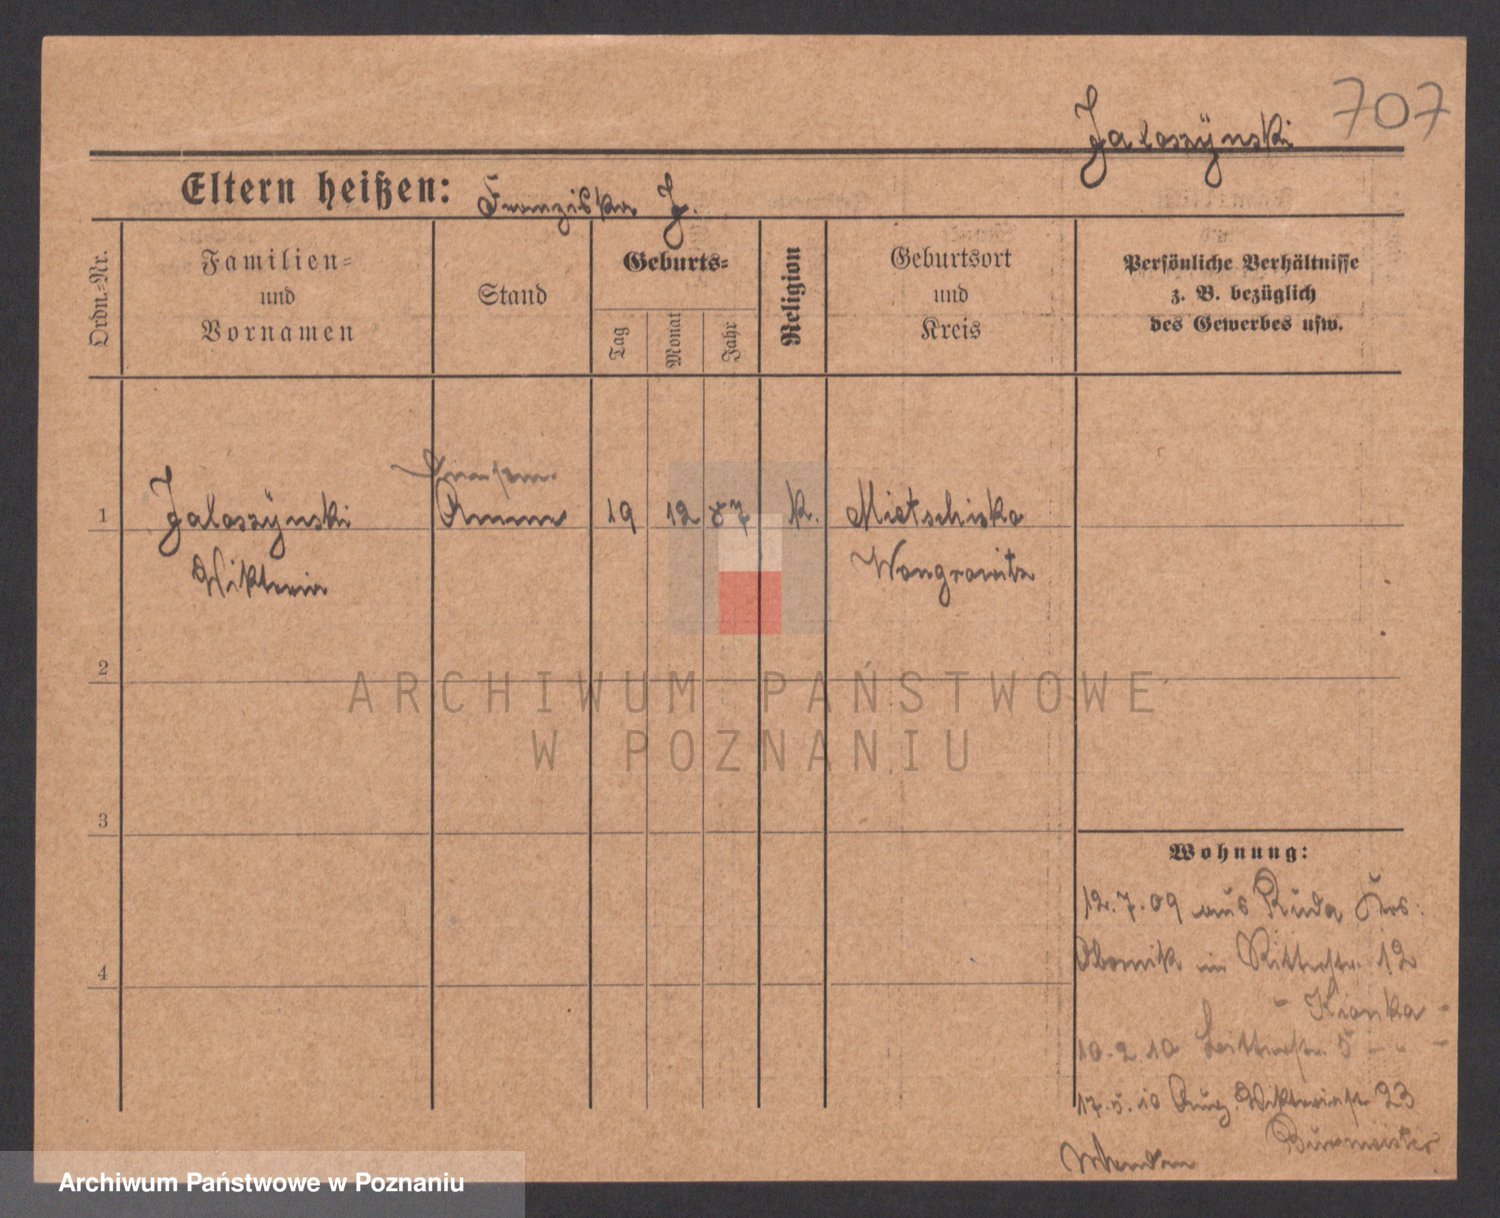 707
Jaloszÿnski
Eltern heißen: Franziska J.
Ordn.-Nr.
Familien-
und
Vornamen
Stand
Geburts-
Tag
Monat
Jahr
Religion
Geburtsort
und
Kreis
Persönliche Verhältnisse
z. B. bezüglich
des Gewerbes usw.
1
Jaloszÿnski
Viktoria
Amme
19
12
87
k.
Mietschisko
Wongrowitz
2
3
4
Wohnung:
12.7.09 aus Ruda Krs:
Obornik in Ritterstr. 12
10.2.10 5
17.5.10 Aug. Viktoriastr. 23
Burmeister
ARCHIWUM PAŃSTWOWE
W POZNANIU
Archiwum Państwowe w Poznaniu